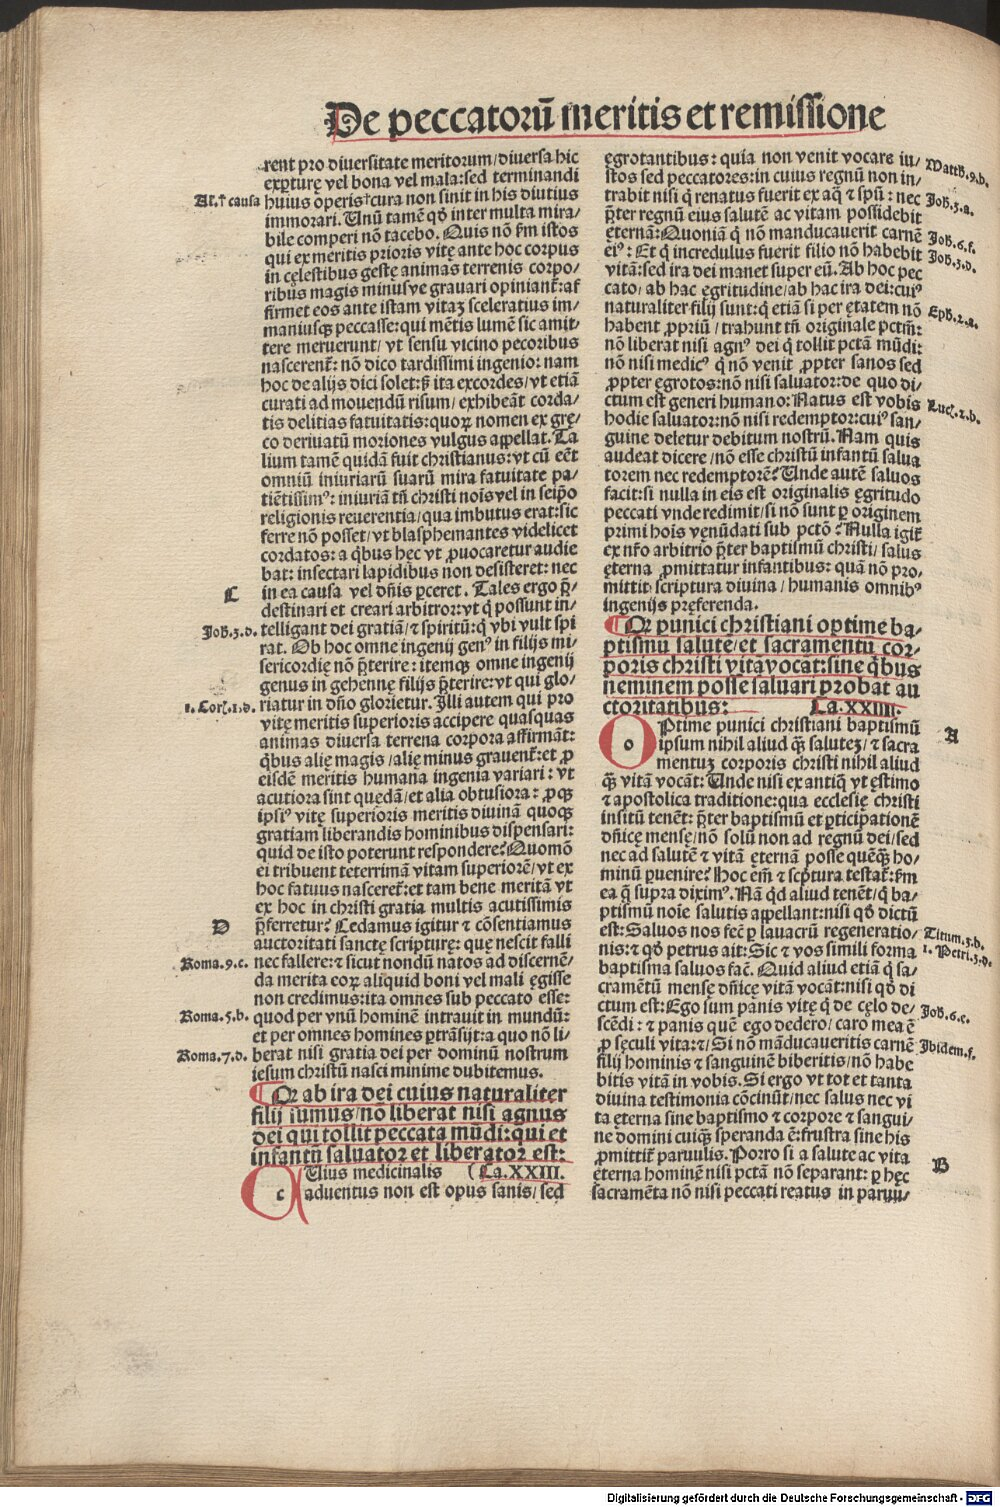 De peccatorū meritis et remissione
rent pro diuersitate meritorum/diuersa hic
expturę vel bona vel mala:sed terminandi
Al.⸆ causa
huius operis⸆cura non sinit in his diutius
immorari. Unū tamē qd̕ inter multa mira/
bile comperi nō tacebo. Quis nō s̄m istos
qui ex meritis prioris vitę ante hoc corpus
in cęlestibus gestę animas terrenis corpo/
ribus magis minusve grauari opiniant̕: af
firmet eos ante istam vitaꝫ sceleratius im/
maniusqꝫ peccasse:qui mētis lumē sic amit/
tere meruerunt/ vt sensu vicino pecoribus
nascerent̕: nō dico tardissimi ingenio: nam
hoc de alijs dici solet:ß ita excordes/vt etiā
curati ad mouendū risum/ exhibeāt corda/
tis delitias fatuitatis:quoꝝ nomen ex grę/
co deriuatū moriones vulgus appellat. Ta
lium tamē quidā fuit christianus:vt cū eēt
omniū iniuriarū suarū mira fatuitate pa/
tiētissimꝰ: iniuriā tn̄ christi nois vel in seip̄o
religionis reuerentia/qua imbutus erat:sic
ferre non posset/vt blasphemantes videlicet
cordatos: a qbus hęc vt ꝓuocaretur audie
bat: insectari lapidibus non desisteret: nec
C
in ea causa vel dn̄is ꝑceret. Tales ergo p̄/
destinari et creari arbitror:vt q possunt in/
Joh.3.d.
telligant dei gratiā/⁊ spiritū:q vbi vult spi
rat. Ob hoc omne ingenij genꝰ in filijs mi/
sericordię nō p̄terire: itemqꝫ omne ingenij
genus in gehennę filijs p̄terire:vt qui glo/
1. Corī.1.d.
riatur in dn̄o glorietur. Illi autem qui pro
vitę meritis superioris accipere quasquas
animas diuersa terrena corpora affirmāt:
qbus alię magis/alię minus grauent̕:et ꝓ
eisdē meritis humana ingenia variari: vt
acutiora sint quędā/et alia obtusiora: ꝓqꝫ
ipsiꝰ vitę superioris meritis diuinā quoqꝫ
gratiam liberandis hominibus dispensari:
quid de isto poterunt respondere? Quomō
ei tribuent teterrimā vitam superiorē/vt ex
hoc fatuus nasceret̕:et tam bene meritā vt
ex hoc in christi gratia multis acutissimis
D
p̄ferretur? Cedamus igitur ⁊ cōsentiamus
auctoritati sanctę scripturę: quę nescit falli
Roma.9.c.
nec fallere:⁊ sicut nondū natos ad discernē/
da merita eoꝝ aliquid boni vel mali ęgisse
non credimus:ita omnes sub peccato esse:
Roma.5.b.
quod per vnū hominē intrauit in mundū:
et per omnes homines ptrāsijt:a quo nō li/
Roma.7.d.
berat nisi gratia dei per dominū nostrum
iesum christū nasci minime dubitemus.
¶Qꝛ ab ira dei cuius naturaliter
filij sumus/nō liberat nisi agnus
dei qui tollit peccata mūdi:qui et
infantū saluator et liberator est:
Uius medicinalis (Ca.XXIII.
c
aduentus non est opus sanis/ sed
ęgrotantibus: quia non venit vocare iu/
Matth.9.b.
stos sed peccatores:in cuius regnū non in/
trabit nisi q renatus fuerit ex aq̄ ⁊ spū: nec
Joh.3.a.
p̄ter regnū eius salutē ac vitam possidebit
ęternā:Quoniā q nō manducauerit carnē
Joh.6.f.
eiꝰ: Et q incredulus fuerit filio nō habebit
Joh.3.d.
vitā:sed ira dei manet super eū. Ab hoc pec
cato/ab hac ęgritudine/ab hac ira dei:cuiꝰ
naturaliter filij sunt:q etiā si per ętatem nō
Eph.2.a.
habent ꝓpriū/trahunt tn̄ originale pctm̄:
nō liberat nisi agnꝰ dei q tollit pctā mūdi:
nō nisi medicꝰ q nō venit ꝓpter sanos sed
ꝓpter ęgrotos:nō nisi saluator:de quo di/
ctum est generi humano:Natus est vobis
Luc.2.b.
hodie saluator:nō nisi redemptor:cuiꝰ san/
guine deletur debitum nostrū. Nam quis
audeat dicere/nō esse christū infantū salua
torem nec redemptorē? Unde autē saluos
facit:si nulla in eis est originalis ęgritudo
peccati vnde redimit/si nō sunt ꝑ originem
primi hois vęnūdati sub pctō? Nulla igit̕
ex nr̄o arbitrio p̄ter baptismū christi/ salus
ęterna ꝓmittatur infantibus: quā nō pro/
mittit scriptura diuina/ humanis omnibꝰ
ingenijs pręferenda.
¶Qꝛ punici christiani optime ba/
ptismū salutē/et sacramentū cor/
poris christi vitā vocāt:sine qbus
neminem posse saluari probat au
ctoritatibus: Ca.XXIIII.
Ptime punici christiani baptismū
A
o
ipsum nihil aliud qꝫ̄ saluteꝫ/ ⁊ sacra
mentuꝫ corporis christi nihil aliud
qꝫ̄ vitā vocāt: Unde nisi ex antiq̄ vt ęstimo
⁊ apostolica traditione:qua ecclesię christi
insitū tenēt: p̄ter baptismū et pticipationē
dn̄icę mensę/nō solū non ad regnū dei/sed
nec ad salutē ⁊ vitā ęternā posse quēqꝫ̄ ho/
minū puenire? Hoc em̄ ⁊ scptura testat̕:s̄m
ea q̄ supra diximꝰ. Nā qd aliud tenēt/q ba/
ptismū noīe salutis appellant:nisi qd̕ dictū
est: Saluos nos fec̄ ꝑ lauacrū regeneratio/
Titum.3.b.
nis:⁊ qd̕ petrus ait: Sic ⁊ vos simili forma
1. Petri.3.d.
baptisma saluos fac̄. Quid aliud etiā q sa/
cramētū mensę dn̄icę vitā vocāt:nisi qd̕ di
ctum est: Ego sum panis vitę q de cęlo de/
Joh.6.e.
scēdi: ⁊ panis quē ego dedero/caro mea ē
ꝓ sęculi vita:⁊/Si nō māducaueritis carnē
Ibidem.f.
filij hominis ⁊ sanguinē biberitis/nō habe
bitis vitā in vobis. Si ergo vt tot et tanta
diuina testimonia cōcinūt/nec salus nec vi
ta ęterna sine baptismo ⁊ corpore ⁊ sangui/
ne domini cuiqꝫ speranda ē:frustra sine his
ꝓmittit̕ paruulis. Porro si a salute ac vita
B
ęterna hominē nisi pctā nō separant: ꝑ hęc
sacramēta nō nisi peccati reatus in paruu/
Digitalisierung gefördert durch die Deutsche Forschungsgemeinschaft - DFG